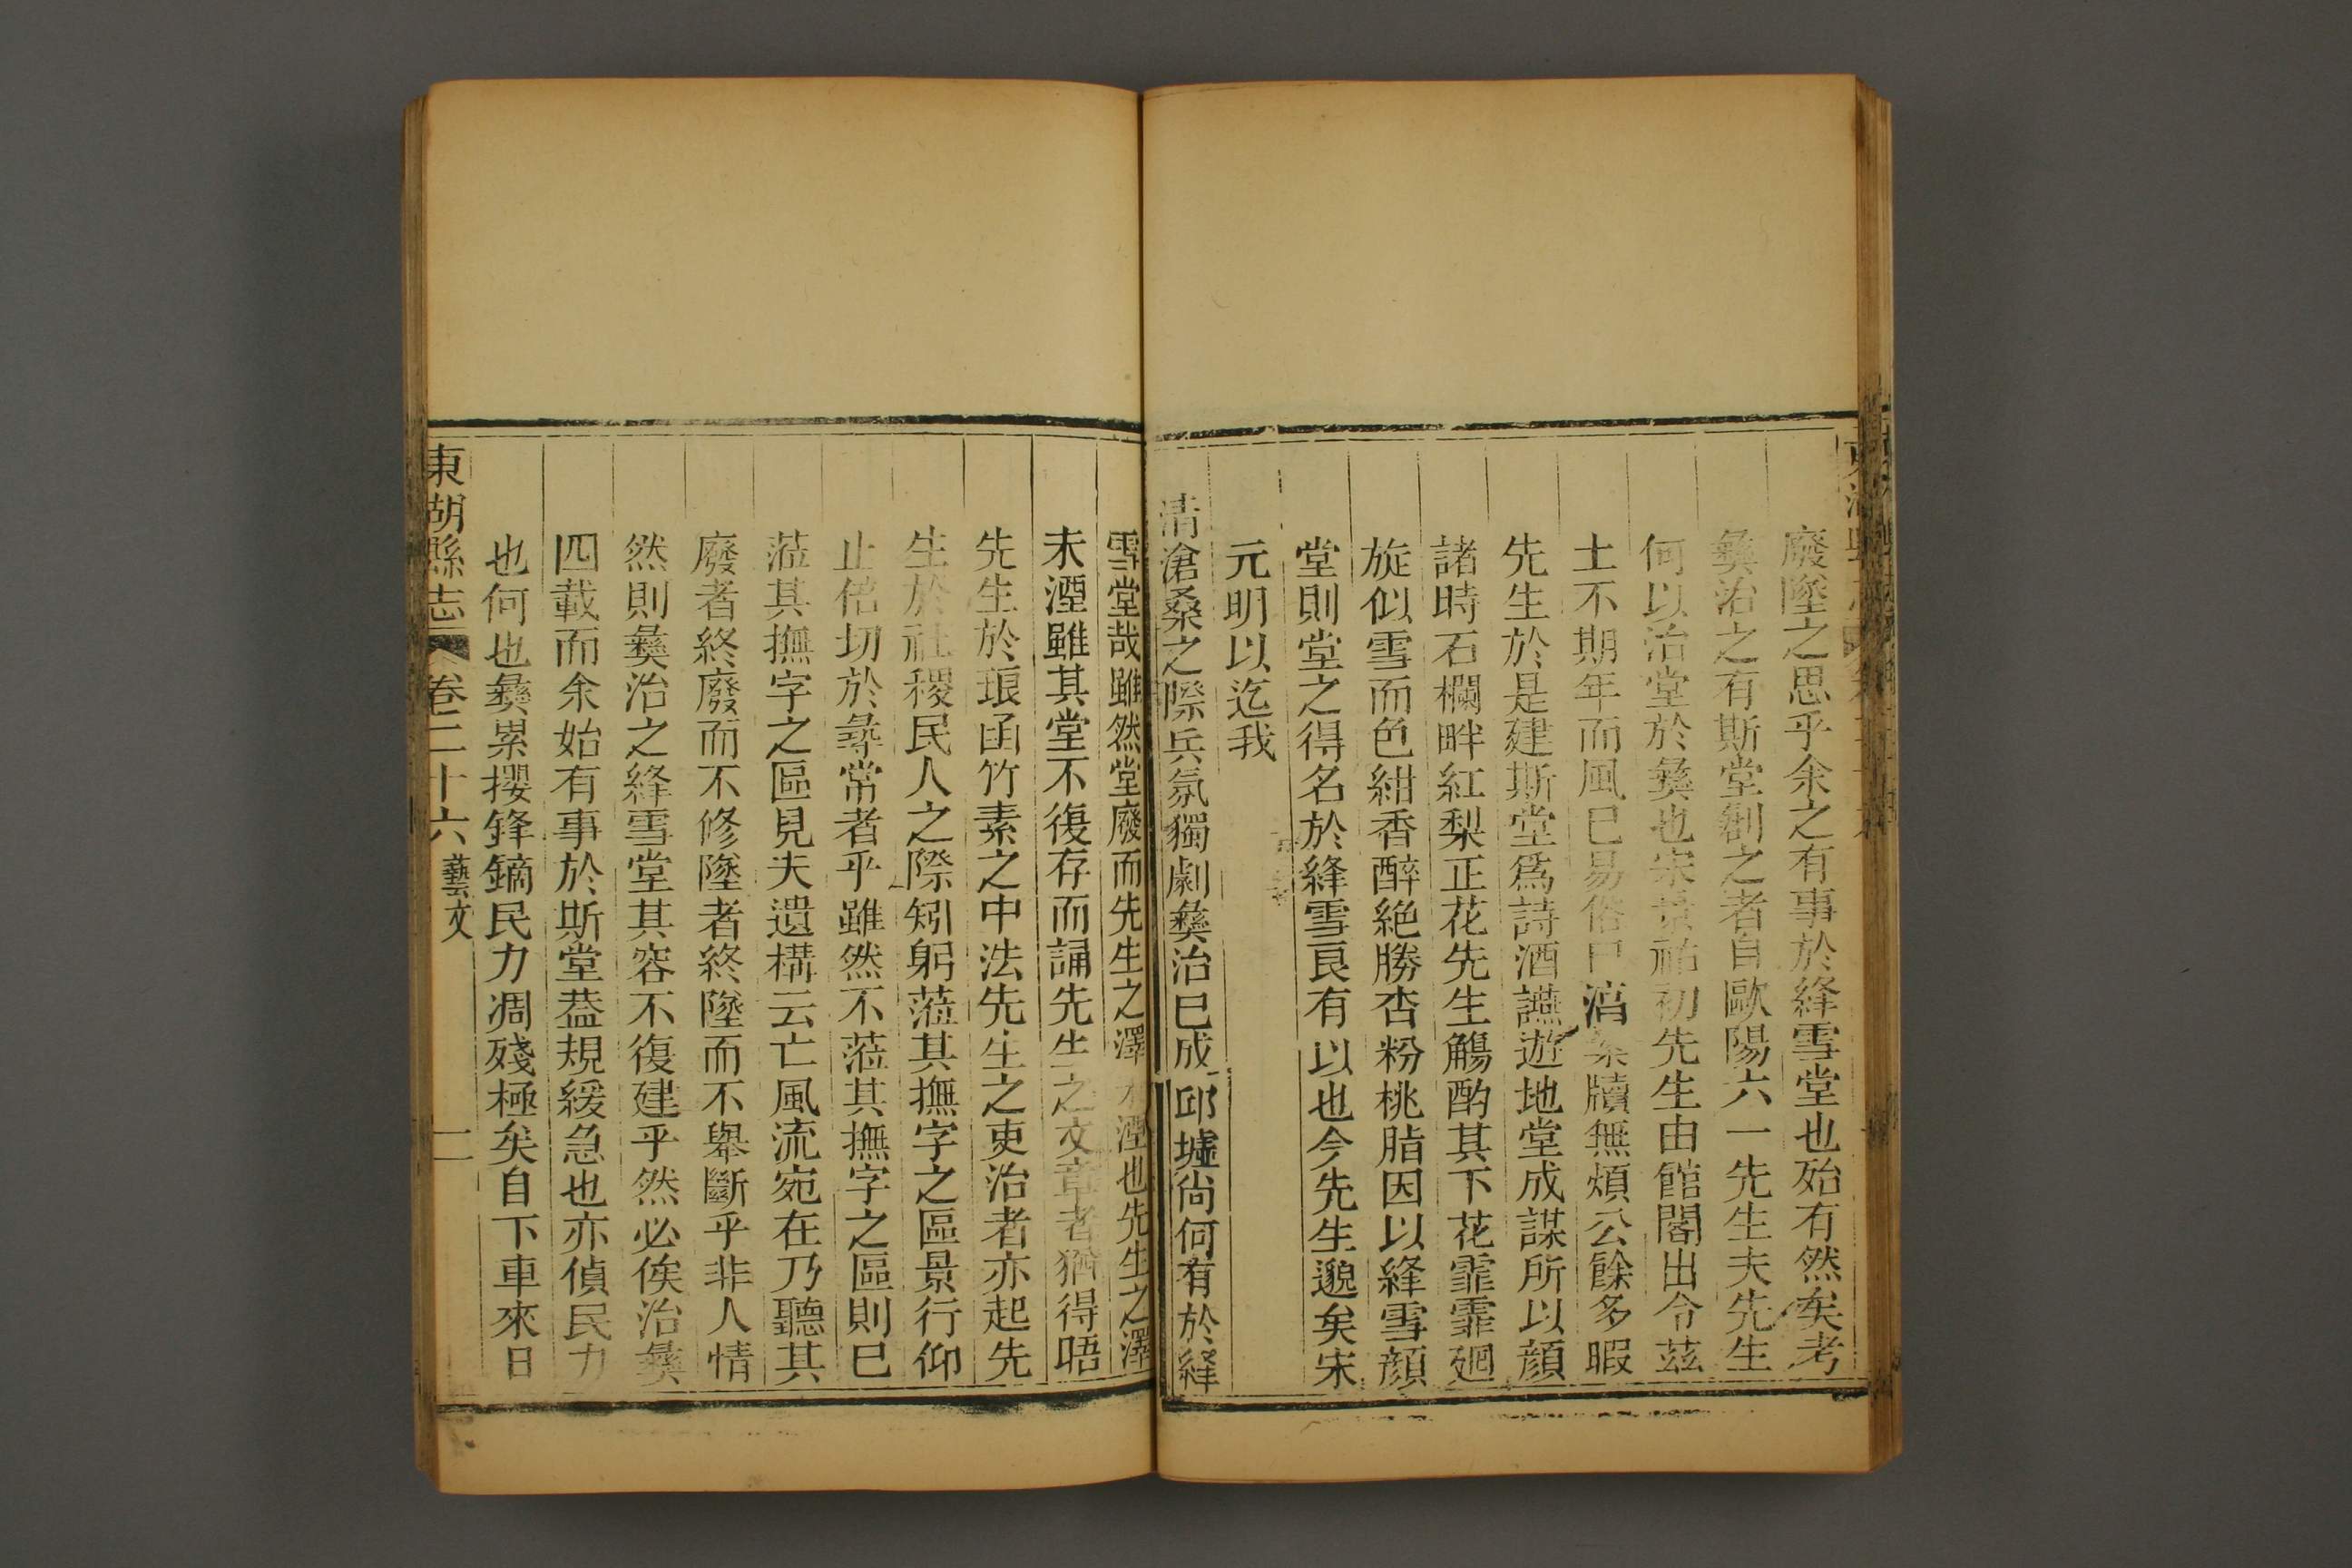 廢墜之思乎余之有事於絳雪堂也殆有然矣考
彝治之有斯堂創之者自歐陽六一先生夫先生
何以治堂於彝也宋景祐初先生由館閣出令茲
土不期年而風已易俗已消案牘無煩公餘多暇
先生於是建斯堂爲詩酒讌遊地堂成謀所以顔
諸時石欄畔紅梨正花先生觴酌其下花霏霏廻
旋似雪而色紺香醉絕勝杏粉桃脂因以絳雪顔
堂則堂之得名於絳雪良有以也今先生邈矣宋
元明以迄我
清滄桑之際兵氛獨劇彝治已成邱墟尙何有於絳
雪堂哉雖然堂廢而先生之澤未湮也先生之澤
未湮雖其堂不復存而誦先生之文章者猶得唔
先生於琅函竹素之中法先生之吏治者亦起先
生於社稷民人之際矧躬蒞其撫字之區景行仰
止倍切於尋常者乎雖然不蒞其撫字之區則已
蒞其撫字之區見夫遺構云亡風流宛在乃聽其
廢者終廢而不修墜者終墜而不舉斷乎非人情
然則彝治之絳雪堂其容不復建乎然必俟治彝
四載而余始有事於斯堂葢規緩急也亦偵民力
也何也彝累攖鋒鏑民力凋殘極矣自下車來日
東湖縣志 卷二十六 藝文 二